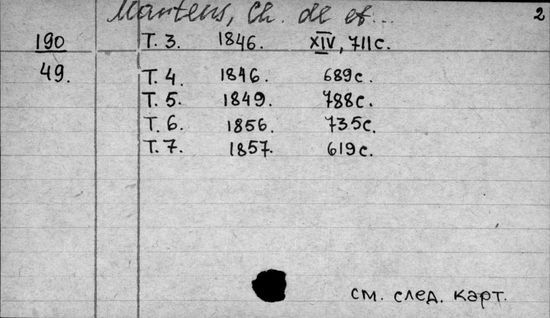 Martens, Ch. de et... 2
190 Т. 3. 1846. XIV, 711с.
49. Т. 4. 1846. 689с.
Т. 5. 1849. 788с.
Т. 6. 1856. 735с.
Т. 7. 1857. 619с.
см. след. карт.